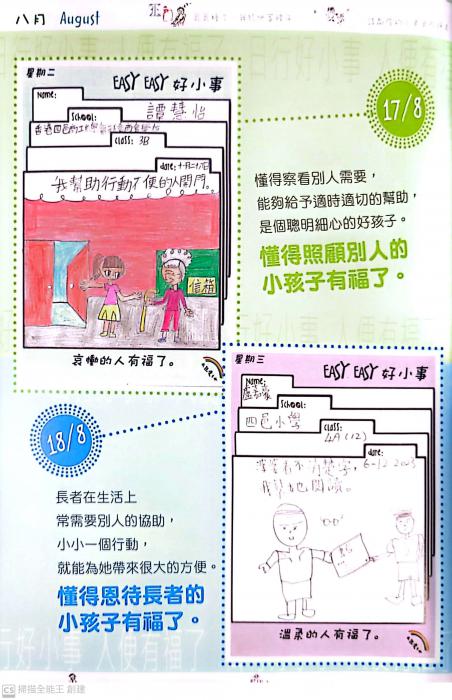 八月 August
星期二
EASY EASY 好小事
Name:
譚慧怡
School:
class: 3B
date: 十月二十八日
我幫助行動不便的人開門。
信箱
哀慟的人有福了。
17/8
懂得察看別人需要，
能夠給予適時適切的幫助，
是個聰明細心的好孩子。
懂得照顧別人的
小孩子有福了。
星期三
EASY EASY 好小事
Name:
School:
四邑小學
class:
4A (12)
date:
6-12-2005
婆婆看不清楚字，
我幫她閱讀。
溫柔的人有福了。
18/8
長者在生活上
常需要別人的協助，
小小一個行動，
就能為她帶來很大的方便。
懂得恩待長者的
小孩子有福了。
CS 掃描全能王 創建